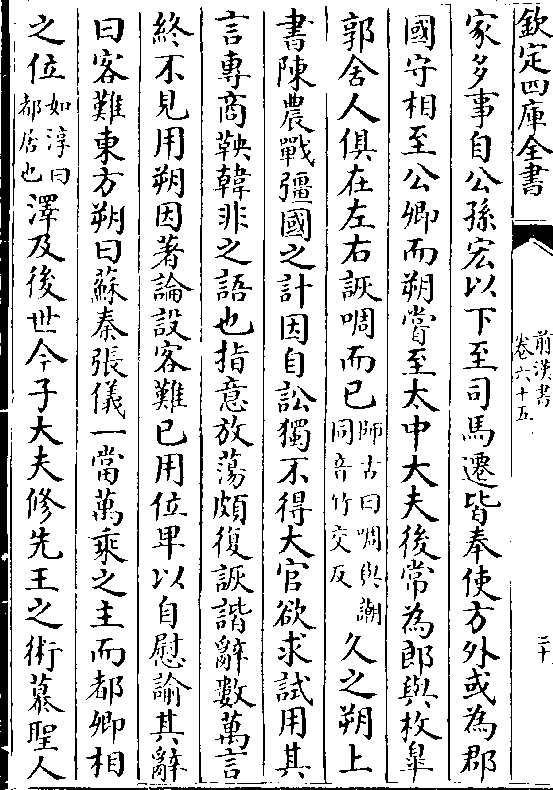 欽定四庫全書
前漢書
卷六十五
二十
家多事自公孫宏以下至司馬遷皆奉使方外或為郡
國守相至公卿而朔嘗至太中大夫後常為郎與枚皐
郭舍人俱在左右詼啁而已師古曰啁與謿同音竹交反久之朔上
書陳農戰彊國之計因自訟獨不得大官欲求試用其
言專商鞅韓非之語也指意放蕩頗復詼諧辭數萬言
終不見用朔因著論設客難已用位卑以自慰諭其辭
曰客難東方朔曰蘇秦張儀一當萬乘之主而都卿相
之位如淳曰都居也澤及後世今子大夫修先王之術慕聖人